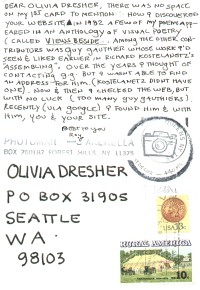 DEAR OLIVIA DRESHER, THERE WAS NO SPACE
ON MY 1ST CARD TO MENTION HOW I DISCOVERED
YOUR WEBSITE. IN 1992 A FEW OF MY POEMS APP-
EARED IN AN ANTHOLOGY OF VISUAL POETRY
(CALLED VIEWS BESIDE. AMONG THE OTHER CON-
TRIBUTORS WAS GUY GAUTHIER WHOSE WORK I'D
SEEN & LIKED EARLIER IN RICHARD KOSTELANETZ'S
"ASSEMBLING". OVER THE YEARS I THOUGHT OF
CONTACTING G.G. BUT I WASN'T ABLE TO FIND
AN ADDRESS FOR HIM. (KOSTELANETZ DIDN'T HAVE
ONE). NOW & THEN I CHECKED THE WEB, BUT
WITH NO LUCK (TOO MANY GUY GAUTHIERS).
RECENTLY (VIA GOOGLE) I FOUND HIM & WITH
HIM, YOU & YOUR SITE.
BEST TO YOU
FOREST HILLS, NY 11375
OLIVIA DRESHER
P O BOX 31905
SEATTLE
WA
98103
USA
RURAL AMERICA
10c